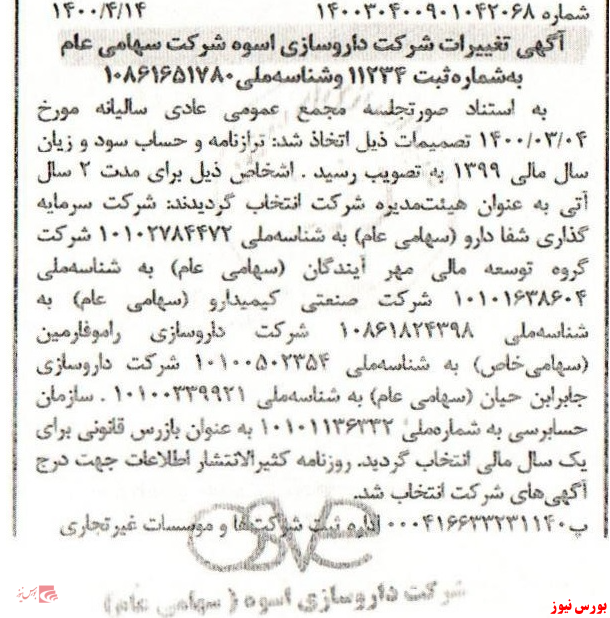 شماره ۱۴۰۰۳۰۴۰۰۹۰۱۰۴۲۰۶۸ ۱۴۰۰/۴/۱۴
آگهی تغییرات شرکت داروسازی اسوه شرکت سهامی عام
به‌شماره ثبت ۱۱۲۳۴ وشناسه‌ملی۱۰۸۶۱۶۵۱۷۸۰
به استناد صورتجلسه مجمع عمومی عادی سالیانه مورخ
۱۴۰۰/۰۳/۰۴ تصمیمات ذیل اتخاذ شد: ترازنامه و حساب سود و زیان
سال مالی ۱۳۹۹ به تصویب رسید . اشخاص ذیل برای مدت ۲ سال
آتی به عنوان هیئت‌مدیره شرکت انتخاب گردیدند: شرکت سرمایه
گذاری شفا دارو (سهامی عام) به شناسه‌ملی ۱۰۱۰۲۷۸۴۴۷۲ شرکت
گروه توسعه مالی مهر آیندگان (سهامی عام) به شناسه‌ملی
۱۰۱۰۱۶۳۸۶۰۴ شرکت صنعتی کیمیدارو (سهامی عام) به
شناسه‌ملی ۱۰۸۶۱۸۲۴۳۹۸ شرکت داروسازی راموفارمین
(سهامی‌خاص) به شناسه‌ملی ۱۰۱۰۰۵۰۲۳۵۴ شرکت داروسازی
جابرابن حیان (سهامی عام) به شناسه‌ملی ۱۰۱۰۰۳۳۹۹۲۱ . سازمان
حسابرسی به شماره‌ملی ۱۰۱۰۱۱۳۶۳۳۲ به عنوان بازرس قانونی برای
یک سال مالی انتخاب گردید. روزنامه کثیرالانتشار اطلاعات جهت درج
آگهی‌های شرکت انتخاب شد.
پ۰۰۰۴۱۶۶۳۳۲۳۱۱۴۰ اداره ثبت شرکت‌ها و موسسات غیرتجاری
osve
شرکت داروسازی اسوه ( سهامی عام)
بورس نیوز
بورس نیوز